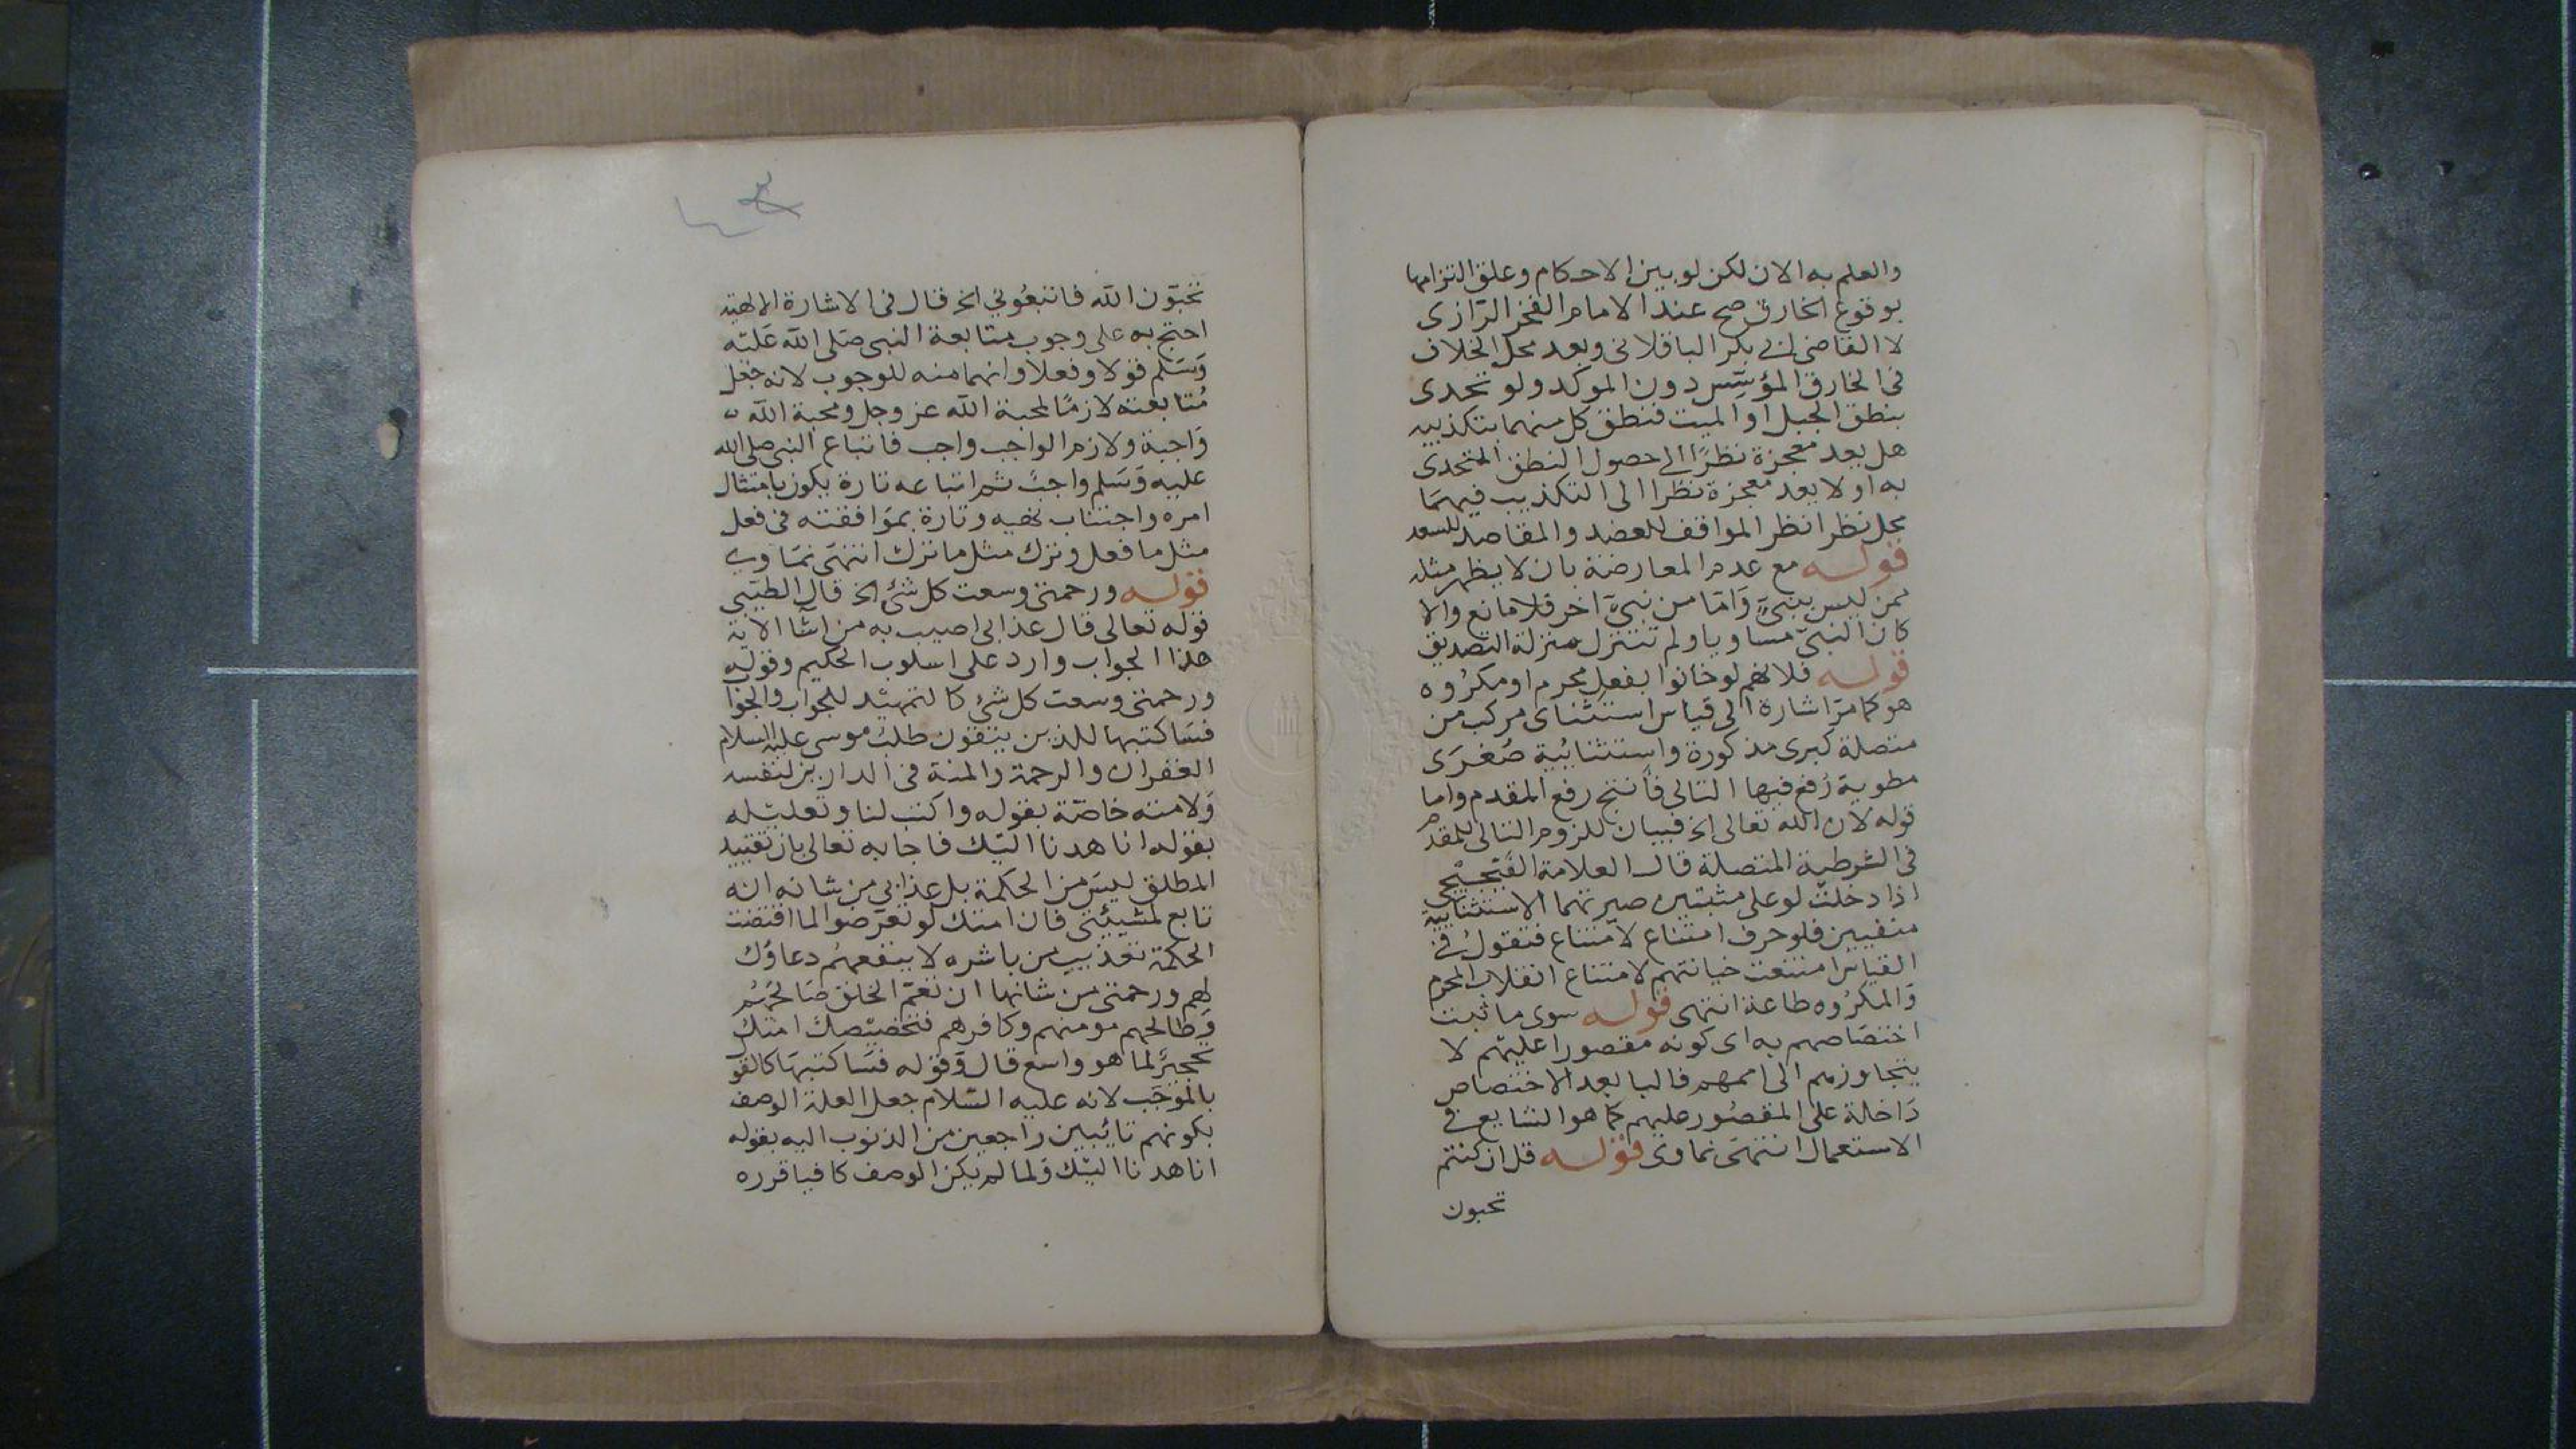 والعلم به الان لكن لو بين الاحكام وعلق التزامها
بوقوع الخارق صح عند الامام الفخر الرازى
لا القاضى ابى بكر الباقلانى وبعد محل الخلاف
فى الخارق المؤسس دون الموكد ولو تحدى
بنطق الجبل او الميت فنطق كل منهما بتكذيبه
هل يعد معجزة نظرًا الى حصول النطق المتحدى
به او لا يعد معجزة نظرا الى التكذيب فيهما
محل نظر انظر المواقف للعضد والمقاصد للسعد
قوله مع عدم المعارضة بان لا يظهر مثله
ممن ليس بنبىّ وَامّا من نبىّ اخر فلا مانع والا
كان النبىّ مساويا ولم تتنزل منزلة التصديق
قوله فلانهم لو خانوا بفعل محرم او مكرُوه
هو كما مرّ اشارة الى قياس استثناى مركب من
متصلة كبرى مذكورة واستثنائية صُغرَى
مطوية رُفع فيها التالى فأنتج رفع المقدم واما
قوله لان الله تعالى الخ فبيان للزوم التالى للمقدم
فى الشرطية المتصلة قال العلامة
اذا دخلت لو على مثبتين صيرتهما الاستثنايية
منفيين فلو حرف امتناع لامتناع فتقولُ فى
القياس امتنعت خيانتهم لامتناع انقلاب المحرم
وَالمكرُوه طاعة انتهى قوله سوى ما ثبت
اختصَاصهم به اى كونه مقصورا عليهم لا
يتجاوزهم الى اممهم فالبا بعد الاختصاص
دَاخلة على المقصُور عليهم كما هو الشايع فى
الاستعمال انتهى نماوى قوله قل ان كنتم
تحبون
تحبّون الله فاتبعُونى الخ قال فى الاشارة الالهية
احتج به على وجوب متابعة النبى صَلى الله عَليْه
وَسَلم قولا وفعلا وانهما منه للوجوب لانه جعل
مُتابعته لازمًا لمحبة الله عز وجل ومحبة الله
وَاجبة ولازم الواجب واجب فاتباع النبى صلى الله
عليه وَسَلم واجبٌ ثم اتباعه تارة يكون بامتثال
امره واجتناب نهيه وتارة بموَافقته فى فعل
مثل ما فعل وترك مثل ما ترك انتهَى نمَاوى
قوله ورحمتى وسعت كل شئ الخ قال الطيّبى
قوله تعالى قال عذابى اصيب به من اشا الاية
هذا الجواب وارد على اسلوب الحكيم وقوله
ورحمتى وسعت كل شئ كالتمهيْد للجواب والجوا
فسَاكتبها للذين يتقون طلبَ موسى عليه السلام
الغفران والرحمة والمنة فى الدارين لنفسه
وَلامته خاصّة بقوله واكتب لنا وتعليْله
بقوله انا هدنا اليْك فاجابه تعالى بان تقييد
المطلق ليسَ من الحكمة بل عذابى من شانه انه
تابع لمشيئتى فان امتك لو تعرّضوا لما اقتضت
الحكمة تعذيب من باشره لا ينفعهُم دعاؤك
لهم ورحمتى من شانها ان تعمّ الخلق صَالحهُم
وَطالحهم مومنهم وكافرهم فتخصيْصك امتك
تحجيرٌ لما هو واسع قال وَقوله فسَاكتبهَا كالقو
بالموُجَب لانه عليه السّلام جعل العلة الوصف
بكونهم تائبين راجعين من الذنوب اليه بقوله
انا هدنا اليْك وَلما لم يكن الوصف كافيا قرره